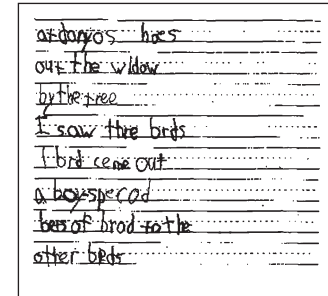 at danyos hoes
out the widow
by the tree
I saw thre brds
1 brd came out
a boy sperod
bets of brad to the
otter brds